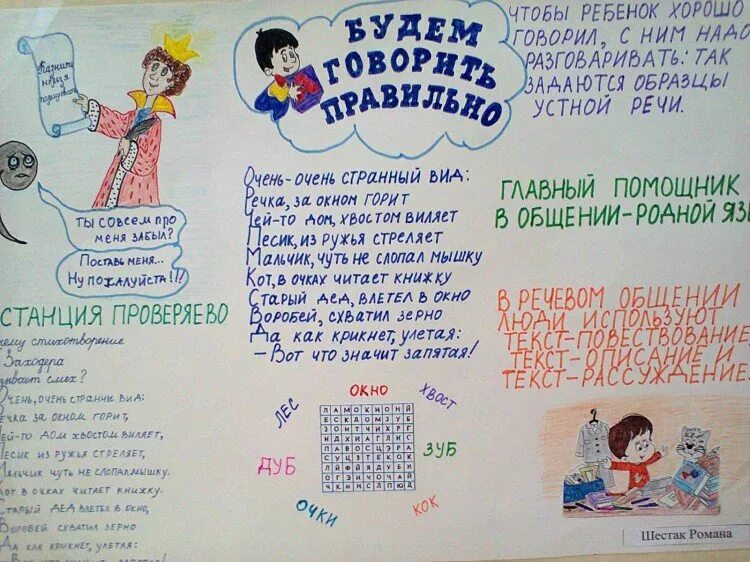 Казнить
нельзя
помиловать
БУДЕМ
ГОВОРИТЬ
ПРАВИЛЬНО
ЧТОБЫ РЕБЕНОК ХОРОШО
ГОВОРИЛ, С НИМ НАДО
РАЗГОВАРИВАТЬ: ТАК
ЗАДАЮТСЯ ОБРАЗЦЫ
УСТНОЙ РЕЧИ.
ТЫ СОВСЕМ ПРО
МЕНЯ ЗАБЫЛ?
ПОСТАВЬ МЕНЯ...
НУ ПОЖАЛУЙСТА!!!
ОЧЕНЬ-ОЧЕНЬ СТРАННЫЙ ВИД:
РЕЧКА, ЗА ОКНОМ ГОРИТ
ЧЕЙ-ТО ДОМ, ХВОСТОМ ВИЛЯЕТ
ПЕСИК, ИЗ РУЖЬЯ СТРЕЛЯЕТ
МАЛЬЧИК, ЧУТЬ НЕ СЛОПАЛ МЫШКУ
КОТ, В ОЧКАХ ЧИТАЕТ КНИЖКУ
СТАРЫЙ ДЕД, ВЛЕТЕЛ В ОКНО
ВОРОБЕЙ, СХВАТИЛ ЗЕРНО
ДА КАК КРИКНЕТ, УЛЕТАЯ:
- ВОТ ЧТО ЗНАЧИТ ЗАПЯТАЯ!
ГЛАВНЫЙ ПОМОЩНИК
В ОБЩЕНИИ-РОДНОЙ ЯЗ
В РЕЧЕВОМ ОБЩЕНИИ
ЛЮДИ ИСПОЛЬЗУЮТ
ТЕКСТ-ПОВЕСТВОВАНИЕ,
ТЕКСТ-ОПИСАНИЕ И
ТЕКСТ-РАССУЖДЕНИЕ
СТАНЦИЯ ПРОВЕРЯЕВО
чему стихотворение
Заходера
зывает смех?
ОЧЕНЬ, ОЧЕНЬ СТРАННЫ ВИД:
ЕЧКА ЗА ОКНОМ ГОРИТ,
ЕЙ-ТО ДОМ ХВОСТОМ ВИЛЯЕТ,
ЕСИК ИЗ РУЖЬЯ СТРЕЛЯЕТ,
АЛЬЧИК ЧУТЬ НЕ СЛОПАЛ МЫШКУ.
КОТ В ОЧКАХ ЧИТАЕТ КНИЖКУ.
СТАРЫЙ ДЕД ВЛЕТЕЛ В ОКНО,
ВОРОБЕЙ СХВАТИЛ ЗЕРНО
ДА КАК КРИКНЕТ, УЛЕТАЯ:
ЛЕС
ОКНО
ХВОСТ
ДУБ
ЗУБ
ОЧКИ
КОК
Шестак Романа